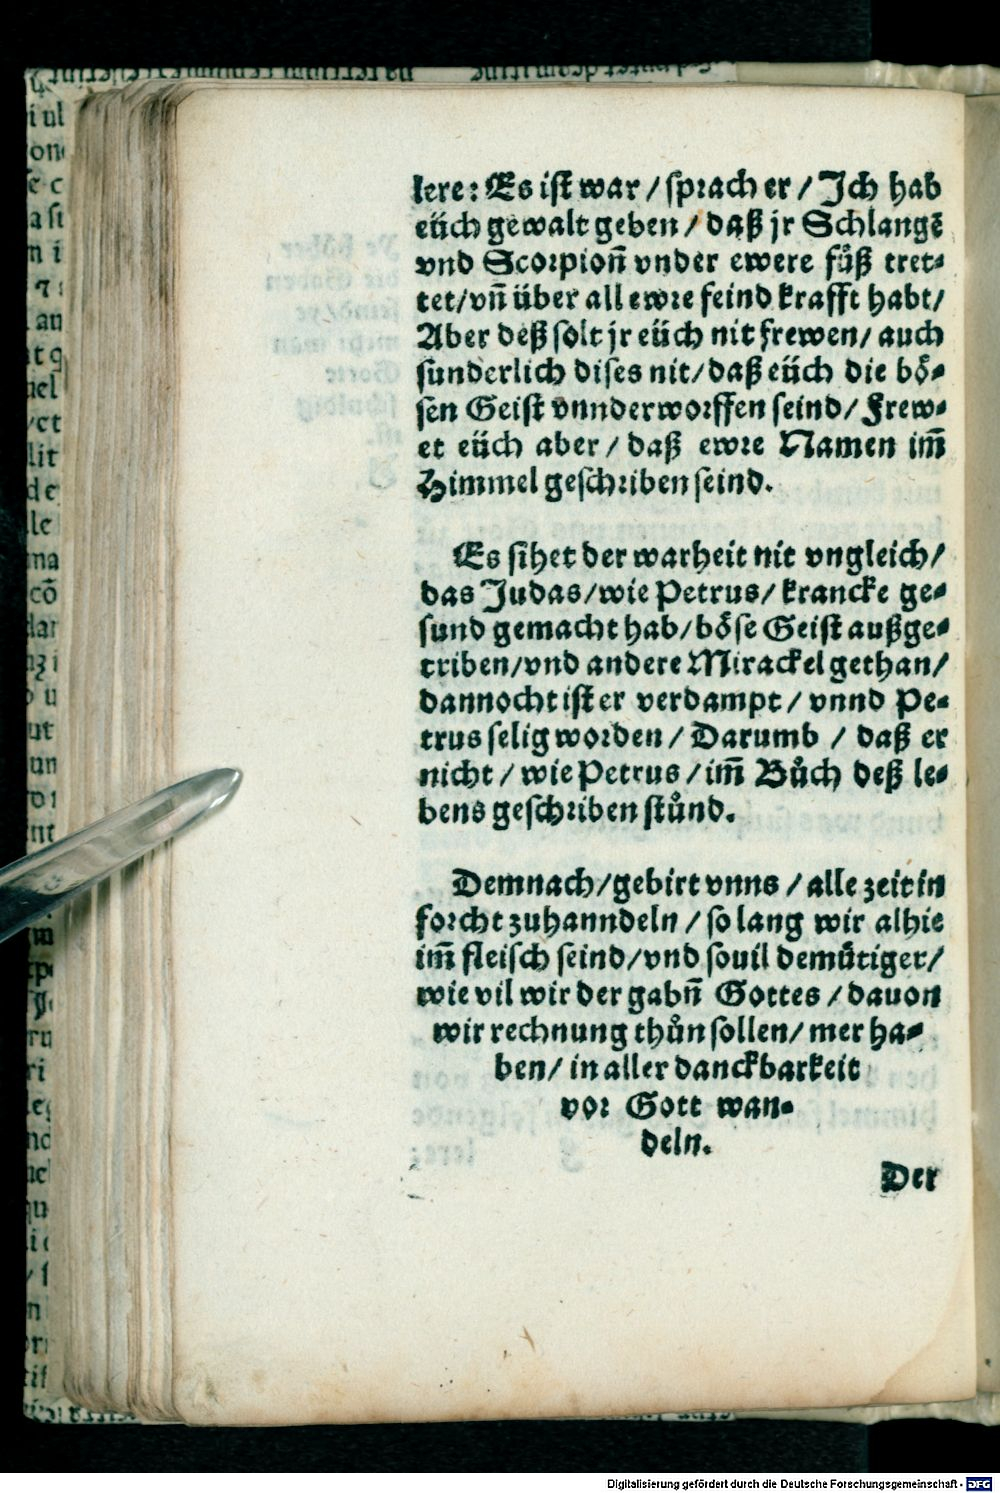 lere: Es ist war / sprach er / Ich hab
eüch gewalt geben / daß jr Schlangē
vnd Scorpionn̄ vnder ewere fuͤß tret-
tet/vn̄ über all ewre feind krafft habt/
Aber deß solt jr eüch nit frewen/ auch
sunderlich dises nit/daß eüch die boͤ-
sen Geist vnnderworffen seind/ Frew-
et eüch aber / daß ewre Namen im̄
Himmel geschriben seind.
Es sihet der warheit nit vngleich/
das Judas/wie Petrus/ krancke ge-
sund gemacht hab/boͤse Geist außge-
triben/vnd andere Mirackel gethan/
dannocht ist er verdampt / vnnd Pe-
trus selig worden / Darumb / daß er
nicht / wie Petrus / im̄ Buͦch deß le-
bens geschriben stuͦnd.
Demnach/gebirt vnns / alle zeit in
forcht zuhanndeln / so lang wir alhie
im̄ fleisch seind/vnd souil demuͤtiger/
wie vil wir der gabn̄ Gottes / dauon
wir rechnung thuͦn sollen/ mer ha-
ben/ in aller danckbarkeit
vor Gott wan-
deln.
Der
Digitalisierung gefördert durch die Deutsche Forschungsgemeinschaft - DFG